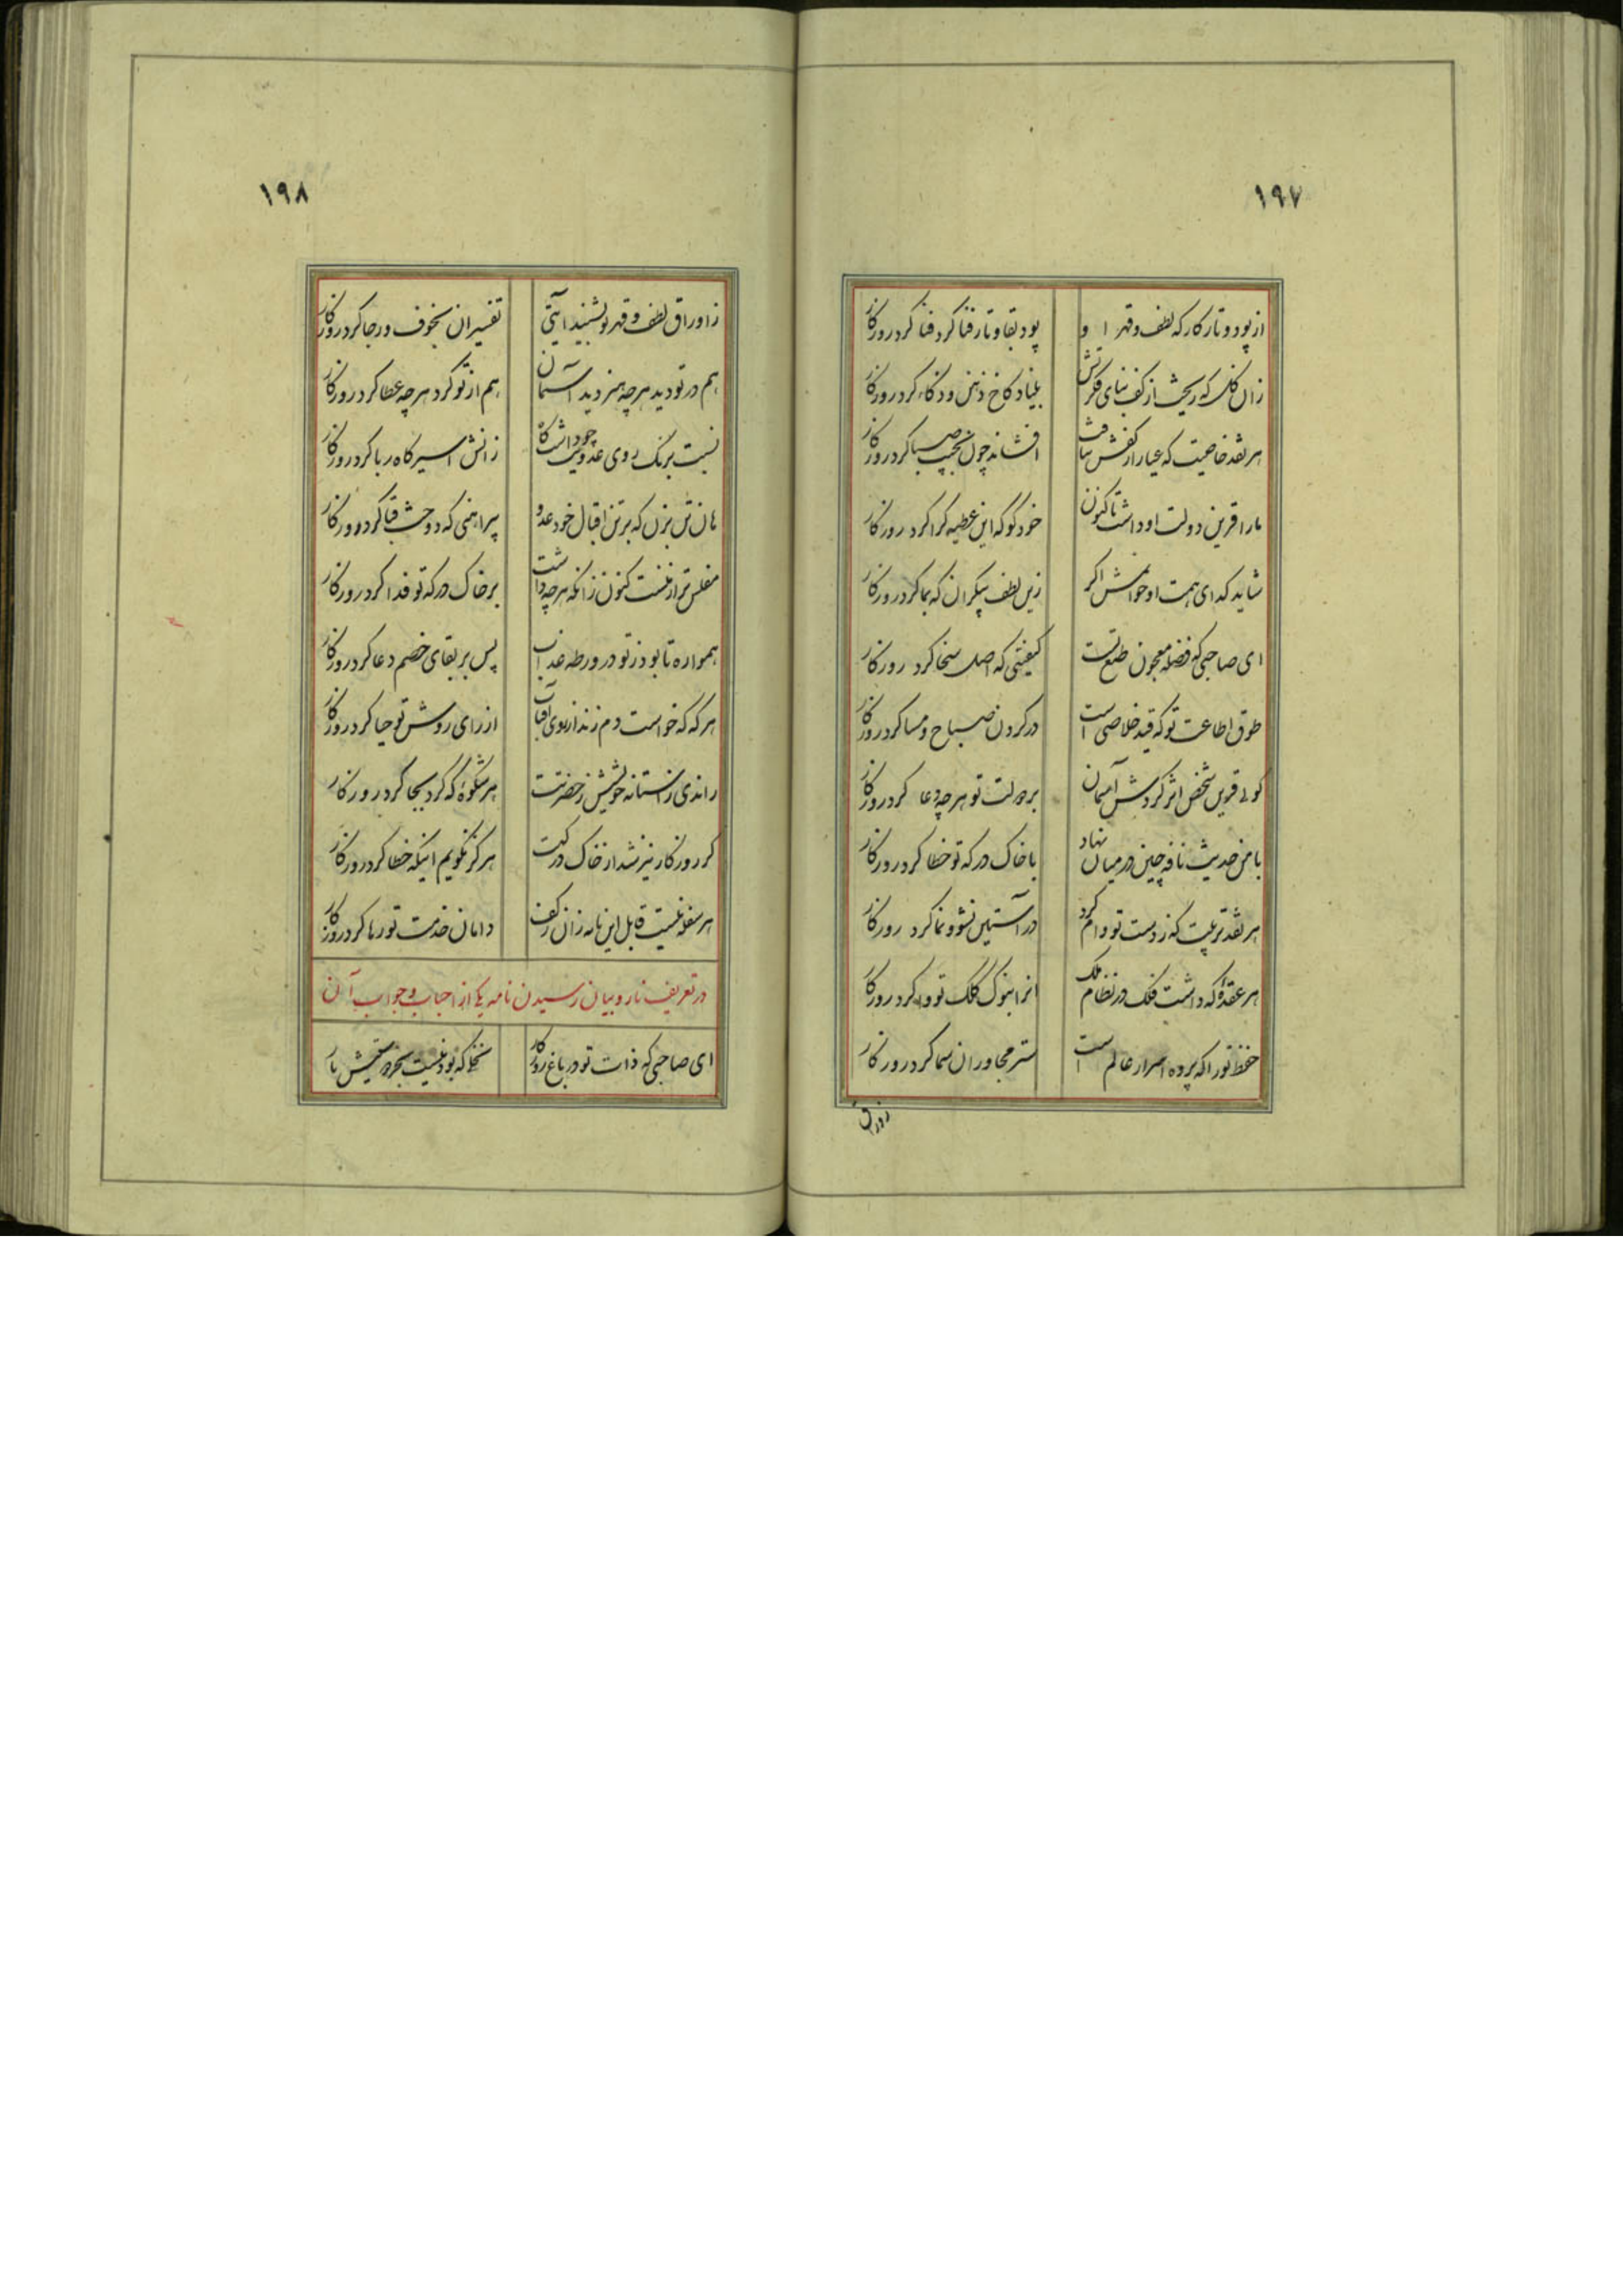 ۱۹۷
از پود و تار کارکه لطف و قهر او
پود بقا و تار فنا کرد روزگار
زان کل که ریخت از کف بنای فکرتش
بنیاد کاخ ذهن و ذکاء کرد روزکار
هر نقد خاصیت که عیار از کفش نیافت
افشاند چون بجیب صبا کرد روزکار
ما را قرین دولت او داشت تا کنون
خود کو که این عطیه کرا کرد روزکار
شاید کدای همت او خوانمش اکر
زین لطف بیکران که بما کرد روزکار
ای صاحبی که فضله معجون طبع تست
کیفیتی که اصل سخا کرد روزکار
طوق اطاعت تو که قید خلاصی است
در کردن صباح و مسا کرد روزکار
کوئی قرین شخص اثر کردش آسمان
بر دولت تو هر چه دعا کرد روزکار
با من حدیث نافه چین در میان نهاد
با خاک درکه تو خطا کرد روزکار
هر نقد تربیت که ز دست تو وام کرد
در آستین نشو و نما کرد روزکار
هر عقدهٔ که داشت فلک در نظام ملک
انرا بنوک کلک تو وا کرد روزکار
حفظ تو را که پرده اسرار عالم است
ستر مجاوران سما کرد روزکار
زاوراق
۱۹۸
زاوراق لطف و قهر تو بشنید ایتی
تفسیر ان بخوف و رجا کرد روزکار
هم در تو دید هر چه هنر دید آسمان
هم از تو کرد هر چه عطا کرد روزکار
نسبت برنک روی عدویت چو داشت کاه
زانش اسیر کاه ربا کرد روزکار
هان تن بزن که بر تن اقبال خود عدو
پیراهنی که دوخت قبا کرد روزکار
مفلس تر از منست کنون زانکه هر چه داشت
بر خاک درکه تو فدا کرد روزکار
همواره تا بود ز تو در ورطه عذاب
پس بر بقای خصم دعا کرد روزکار
هر که که خواست دم زند از روی آفتاب
از رای روشن تو حیا کرد روزکار
راندی ز آستانه خویشش ز حضرتت
هر شکوهٔ که کرد بجا کرد روزکار
کر روزکار نیز شد از خاک درکهت
هرکز نکویم اینکه خطا کرد روزکار
هر سفله نیست قابل این نامه زان ز کف
دامان خدمت تو رها کرد روزکار
در تعریف نار و بیان رسیدن نامه یکی از احباب و جواب آن
ای صاحبی که ذات تو در باغ روزکار
نخلی که بود نیست بجز دستیش بار